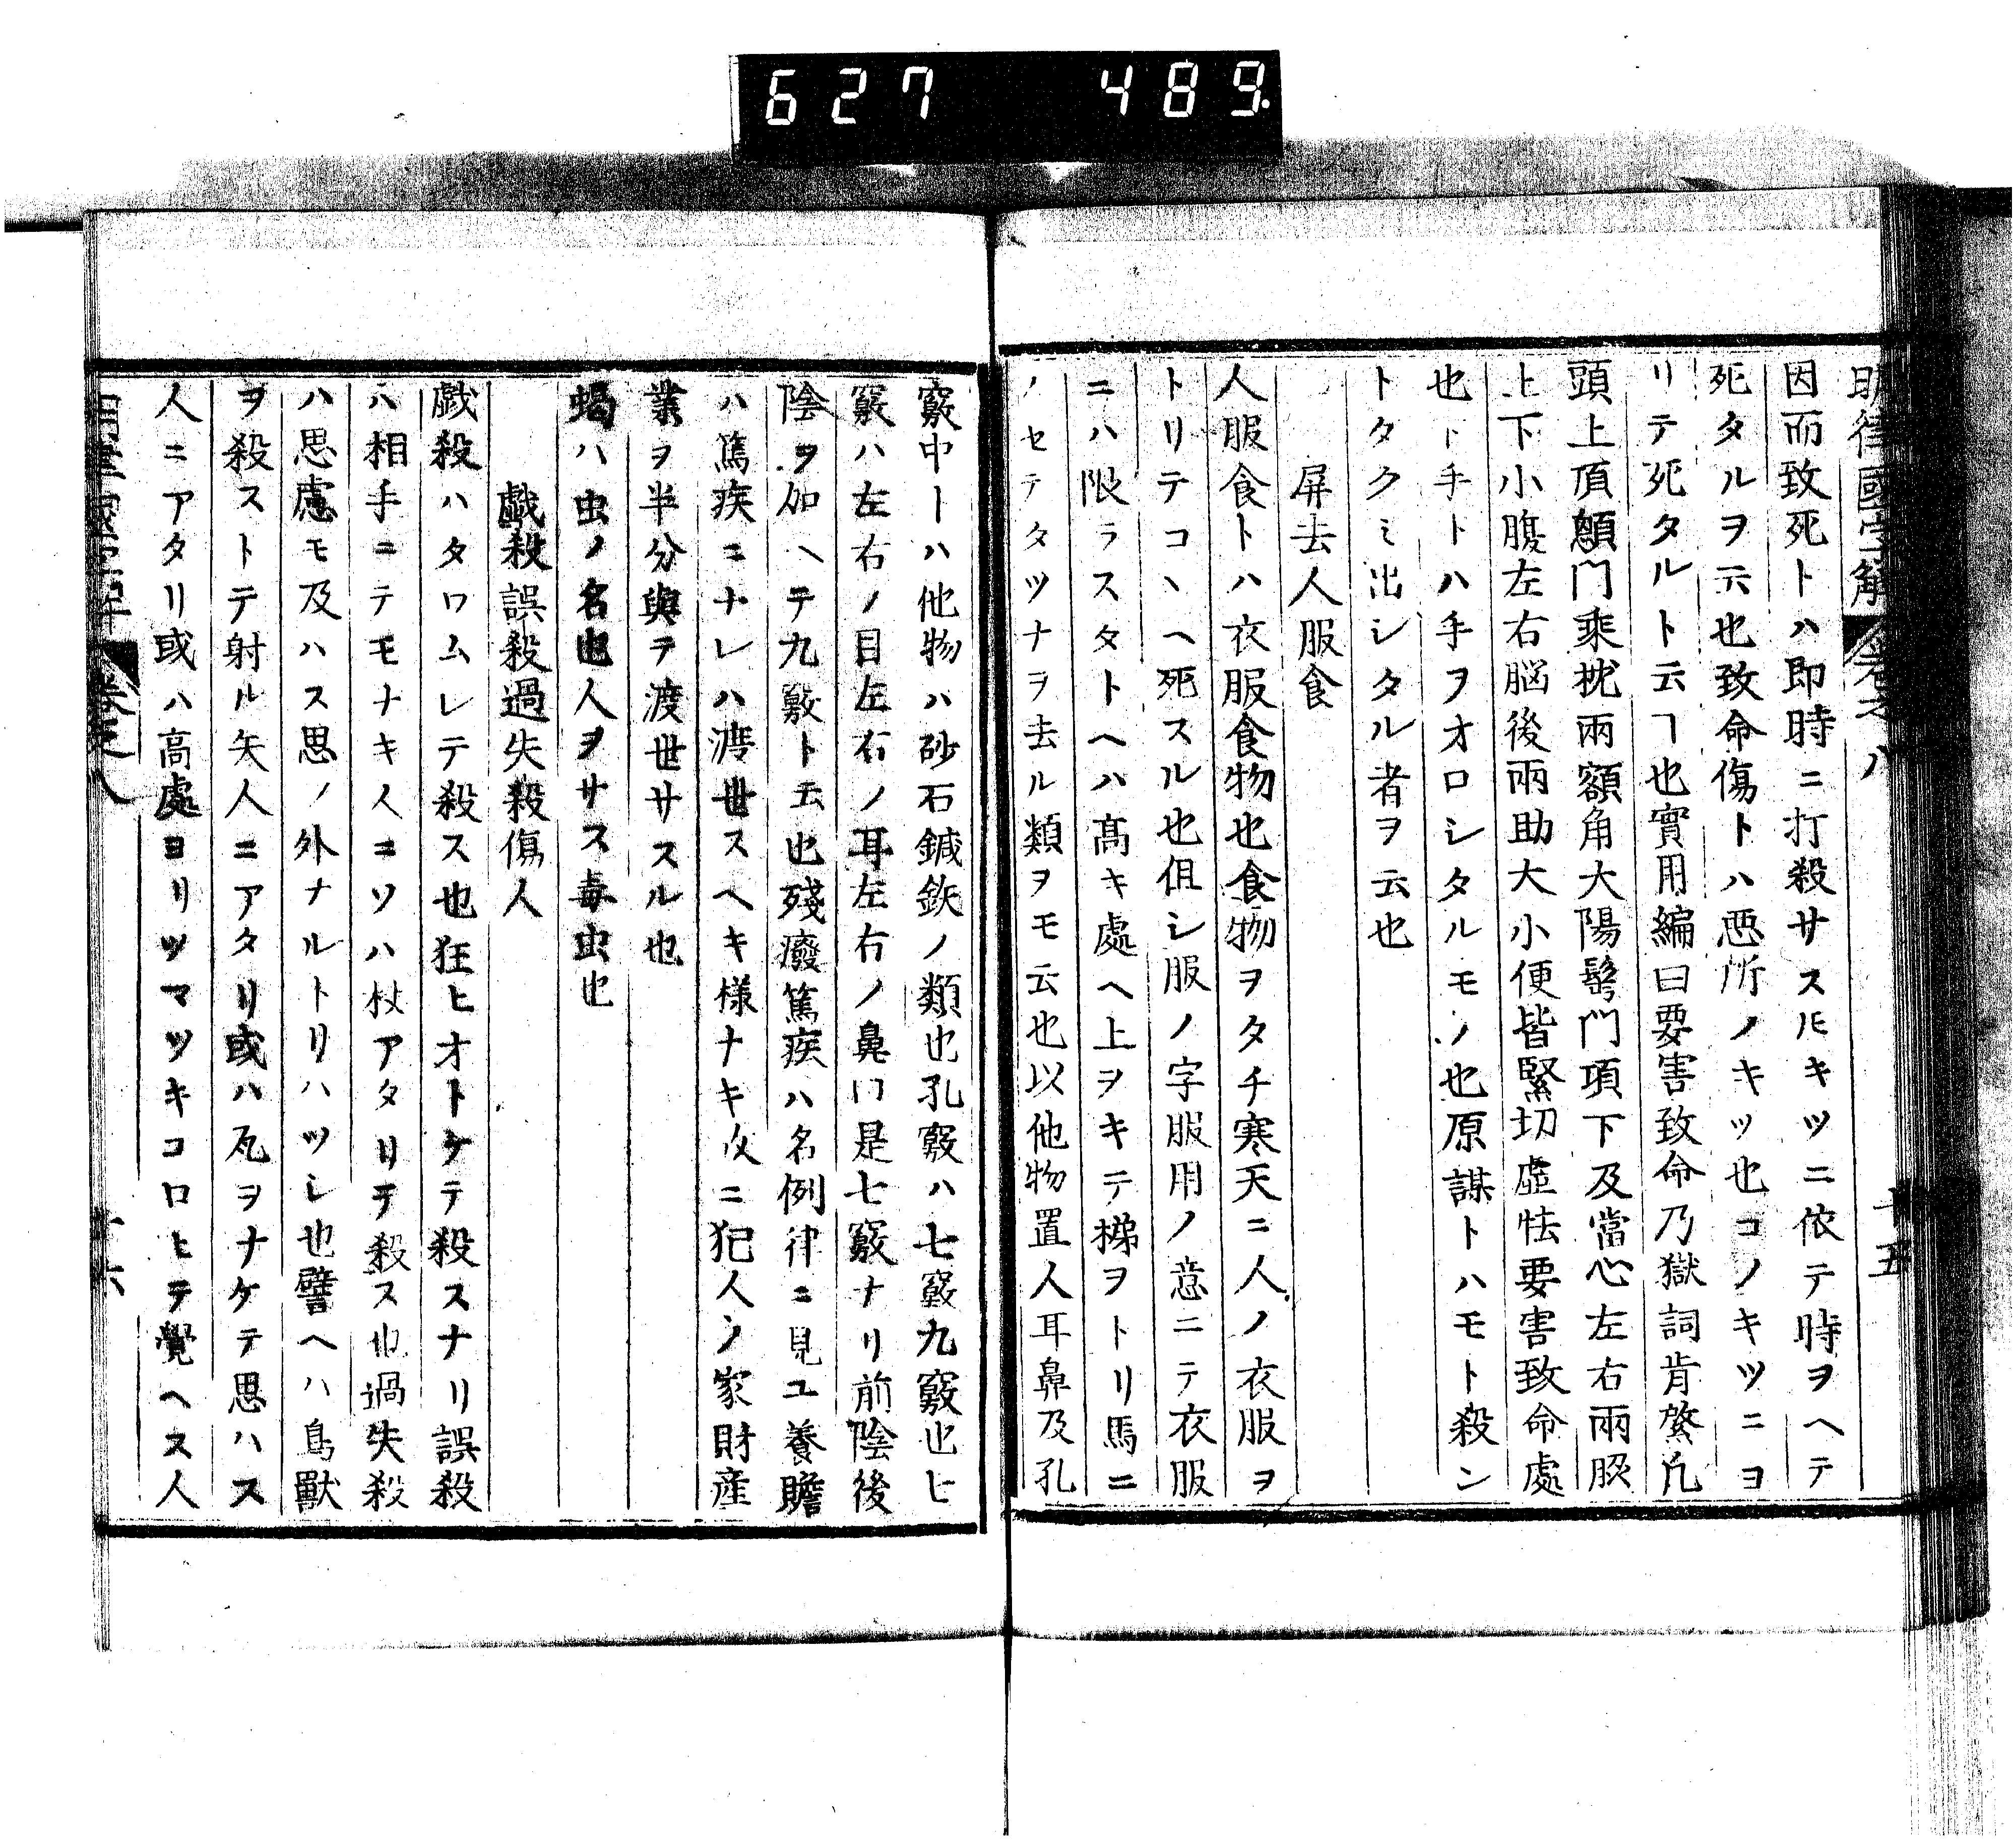 627 489
明律國字解 卷之八 十五
因而致死トハ即時ニ打殺サスㇳモキツニ依テ時ヲヘテ
死タルヲ云也致命傷トハ惡所ノキツ也コノキツニヨ
リテ死タルト云ヿ也實用編曰要害致命乃獄詞肯綮凡
頭上頂顖門乘枕兩額角大陽髩門項下及當心左右兩脇
上下小腹左右脳後兩助大小便皆緊切虛怯要害致命處
也下手トハ手ヲオロシタルモノ也原謀トハモト殺ン
トタクミ出シタル者ヲ云也
屏去人服食
人服食トハ衣服食物也食物ヲタチ寒天ニ人ノ衣服ヲ
トリテコヽヘ死スル也但シ服ノ字服用ノ意ニテ衣服
ニハ限ラスタトヘハ髙キ處ヘ上ヲキテ梯ヲトリ馬ニ
ノセテタツナヲ去ル類ヲモ云也以他物置人耳鼻及孔
竅中トハ他物ハ砂石鍼鉃ノ類也孔竅ハ七竅九竅也七
竅ハ左右ノ目左右ノ耳左右ノ鼻口是七竅ナリ前陰後
陰ヲ加ヘテ九竅ト云也殘癈篤疾ハ名例律ニ見ユ養贍
ハ篤疾ニナレハ渡世スヘキ樣ナキ故ニ犯人ノ家財産
業ヲ半分與テ渡世サスル也
蝎ハ虫ノ名也人ヲサス毒虫也
戯殺誤殺過失殺傷人
戯殺ハタワムレテ殺ス也狂ヒオトケテ殺スナリ誤殺
ハ相手ニテモナキ人ニソハ杖アタリテ殺ス也過失殺
ハ思慮モ及ハス思ノ外ナルトリハツシ也譬ヘハ鳥獸
ヲ殺ストテ射ル矢人ニアタリ或ハ瓦ヲナケテ思ハス
人ニアタリ或ハ高處ヨリツマツキコロヒテ覺ヘス人
明律國字解 卷之八 十六